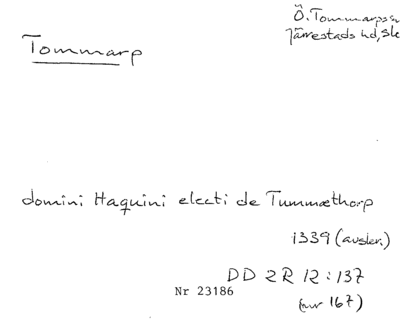 Ö. Tommarps sn
Järrestads hd, Sk
Tommarp
domini Haquini electi de Tummæthorp
1339 (avskr.)
DD 2R 12:137
Nr 23186
(nr 167)